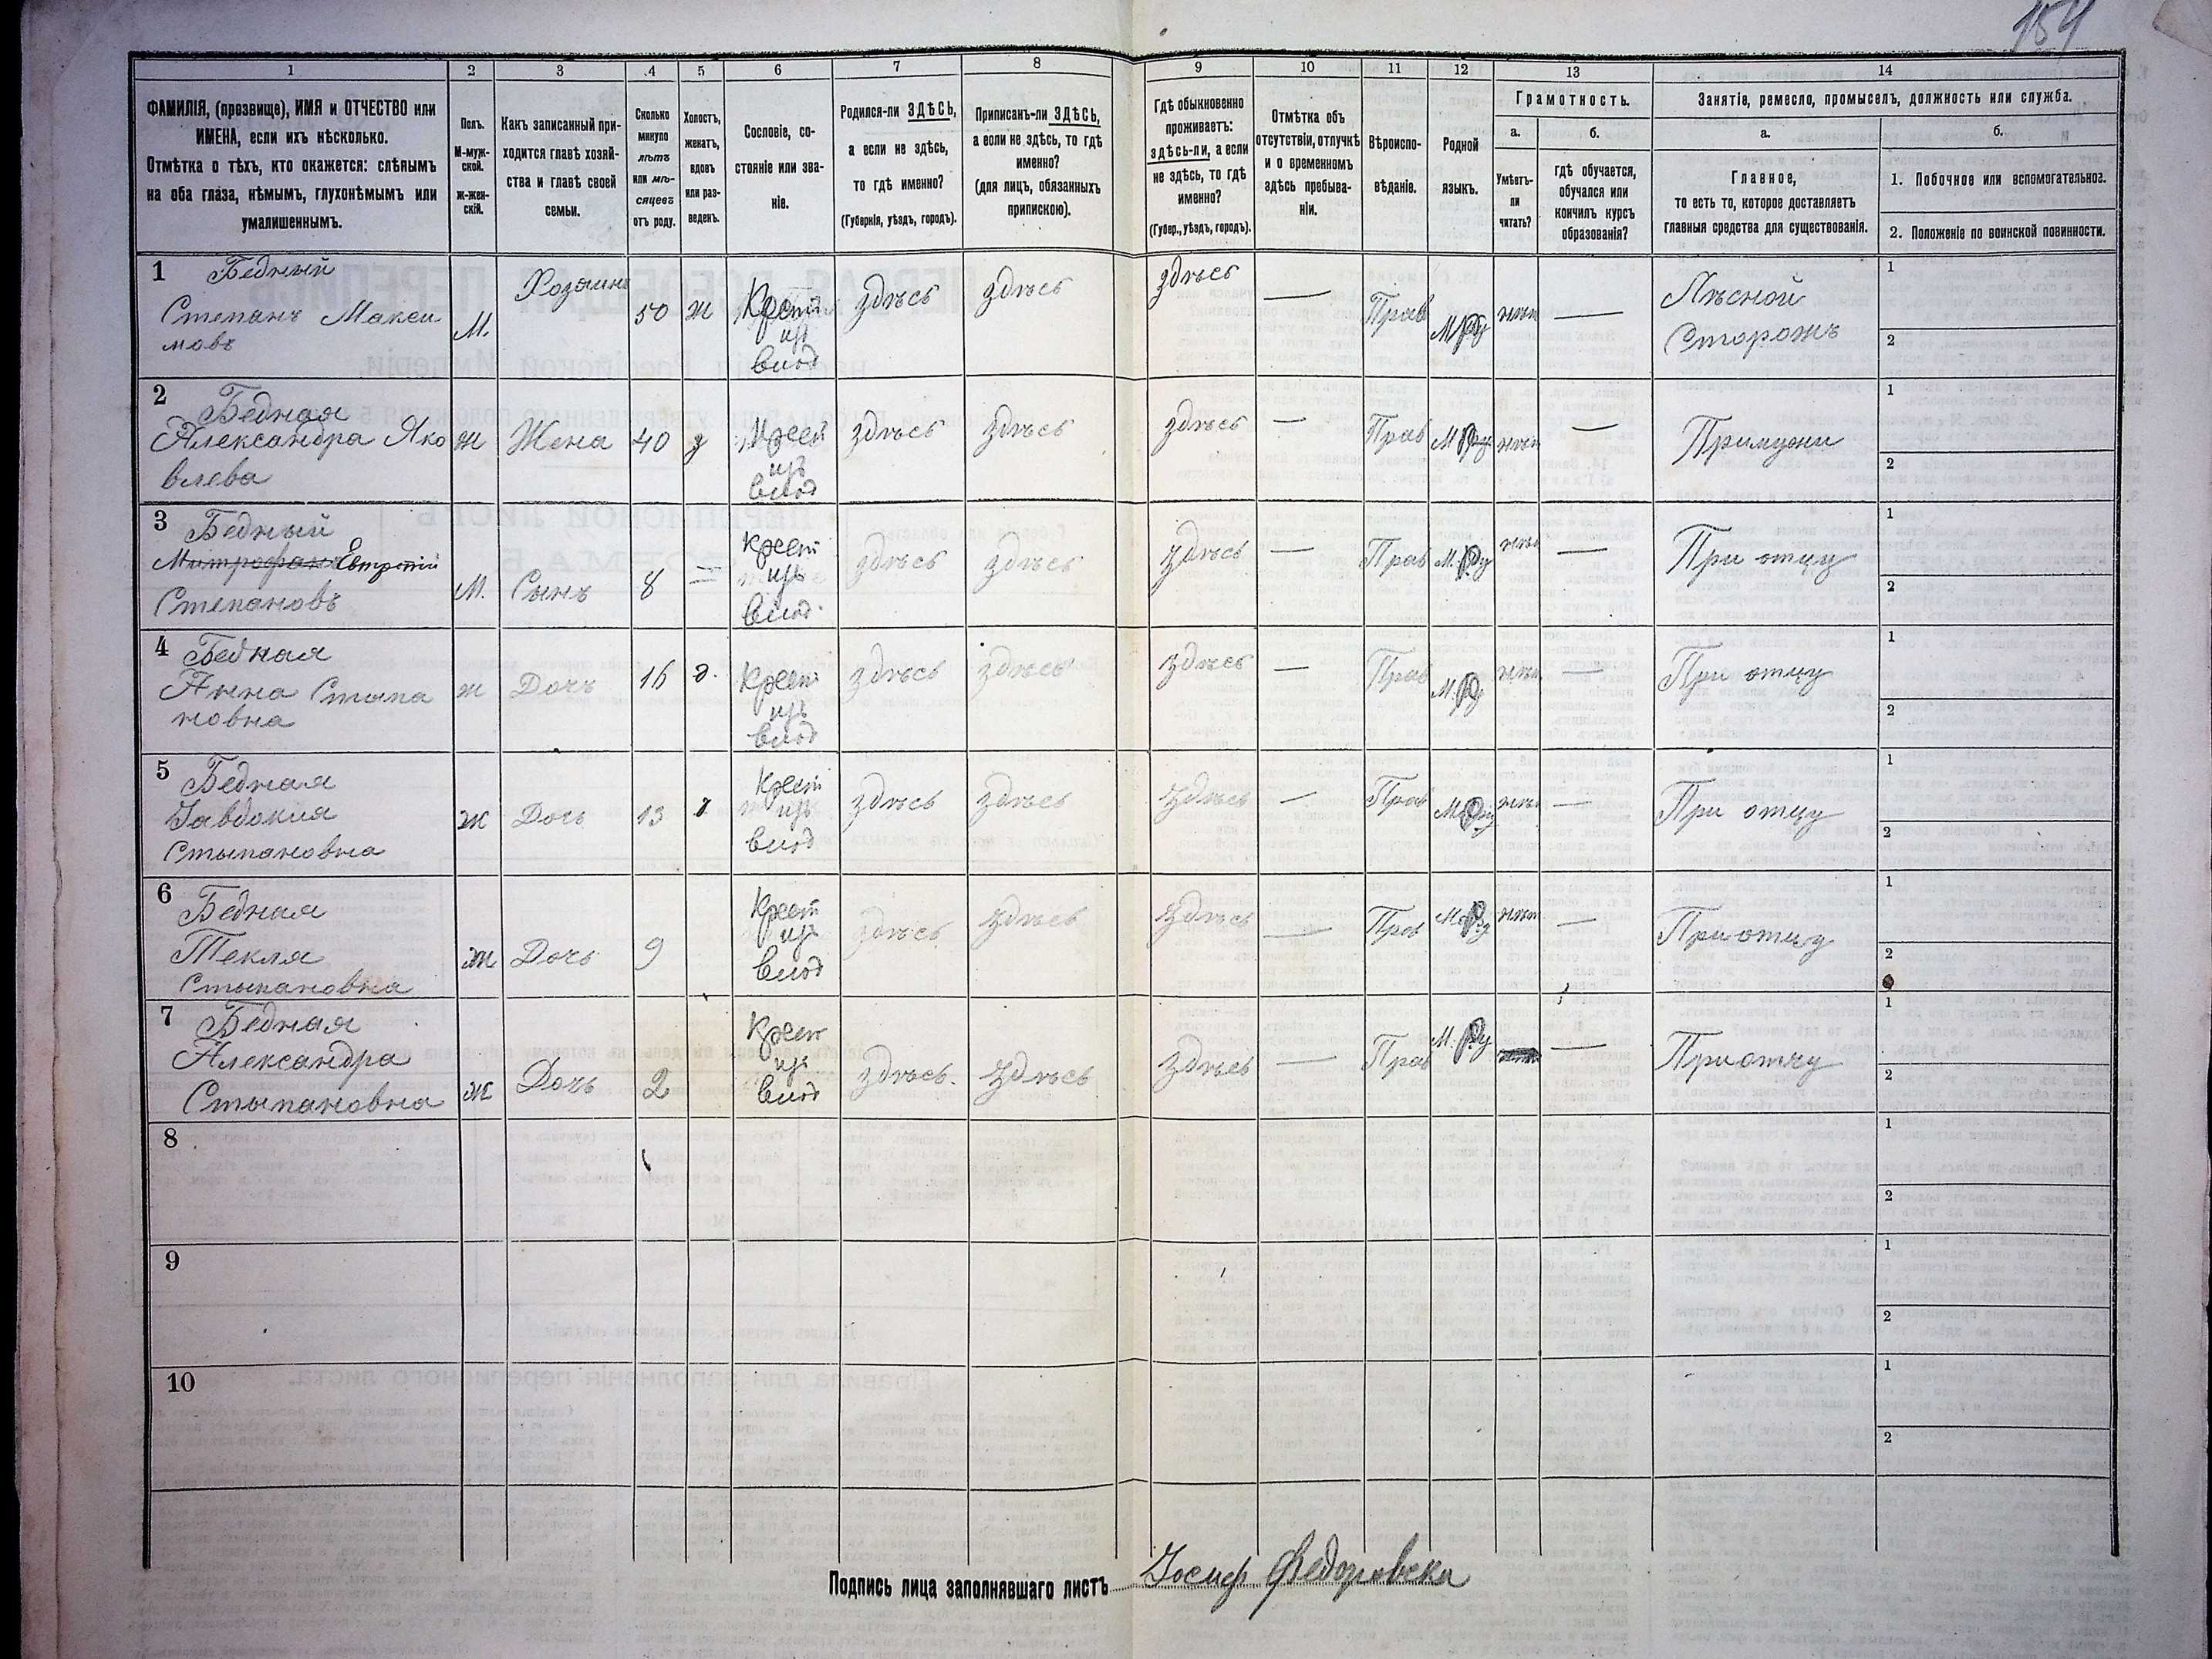 154
1 2 3 4 5 6 7 8 9 10 11 12 13 14
ФАМИЛІЯ, (прозвище), ИМЯ и ОТЧЕСТВО или
ИМЕНА, если ихъ нѣсколько.
Отмѣтка о тѣхъ, кто окажется: слѣпымъ
на оба глаза, нѣмымъ, глухонѣмымъ или
умалишеннымъ.
Полъ.
М-муж-
ской.
Ж-жен-
скій.
Какъ записанный при-
ходится главѣ хозяй-
ства и главѣ своей
семьи.
Сколько
минуло
лѣтъ
или мѣ-
сяцевъ
отъ роду.
Холостъ,
женатъ,
вдовъ
или раз-
веденъ.
Сословіе, со-
стояніе или зва-
ніе.
Родился-ли ЗДѢСЬ,
а если не здѣсь,
то гдѣ именно?
(Губернія, уѣздъ, городъ).
Приписанъ-ли ЗДѢСЬ,
а если не здѣсь, то гдѣ
именно?
(для лицъ, обязанныхъ
припискою).
Гдѣ обыкновенно
проживаетъ:
здѣсь-ли, а если
не здѣсь, то гдѣ
именно?
(Губер., уѣздъ, городъ).
Отмѣтка объ
отсутствіи, отлучкѣ
и о временномъ
здѣсь пребыва-
ніи.
Вѣроиспо-
вѣданіе.
Родной
языкъ.
Грамотность.
а.
Умѣетъ-
ли
читать?
б.
гдѣ обучается,
обучался или
кончилъ курсъ
образованія?
Занятіе, ремесло, промыселъ, должность или служба.
а.
Главное,
то есть то, которое доставляетъ
главныя средства для существованія.
б.
1. Побочное или вспомогательное.
2. Положеніе по воинской повинности.
1 Бедный
Степанъ Макси
мовъ
М. Хозяинъ 50 ж Крест
изъ
влад
здѣсь здѣсь здѣсь — Прав М Ру нѣт — Лѣсной
Сторожъ
1
2
2 Бедная
Александра Яко
влева
ж Жена 40 з Крест
изъ
влад
здѣсь здѣсь здѣсь — Прав М Ру нѣт — Примужи
1
2
3 Бедный
Митрофанъ Евтропій
Степановъ
М. Сынъ 8 — Крест
изъ
влад
здѣсь здѣсь здѣсь — Прав М. Ру нѣт — При отцу
1
2
4 Бедная
Анна Стыпа
новна
ж Дочъ 16 д. Крест
изъ
влад
здѣсь здѣсь здѣсь — Прав М. Ру нѣт — При отцу
1
2
5 Бедная
Явдокия
Стыпановна
ж Дочь 13 д Крест
изъ
влад
здѣсь здѣсь здѣсь — Прав М Ру нѣт — При отцу
1
2
6 Бедная
Текля
Стыпановна
ж Дочь 9 Крест
изъ
влад
здѣсь здѣсь здѣсь — Прав М Ру нѣт — При отцу
1
2
7 Бедная
Александра
Стыпановна
ж Дочь 2 Крест
изъ
влад
здѣсь здѣсь здѣсь — Прав М. Ру — При отцу
1
2
8
1
2
9
1
2
10
1
2
Подпись лица заполнявшаго листъ Іосиф Федоровски